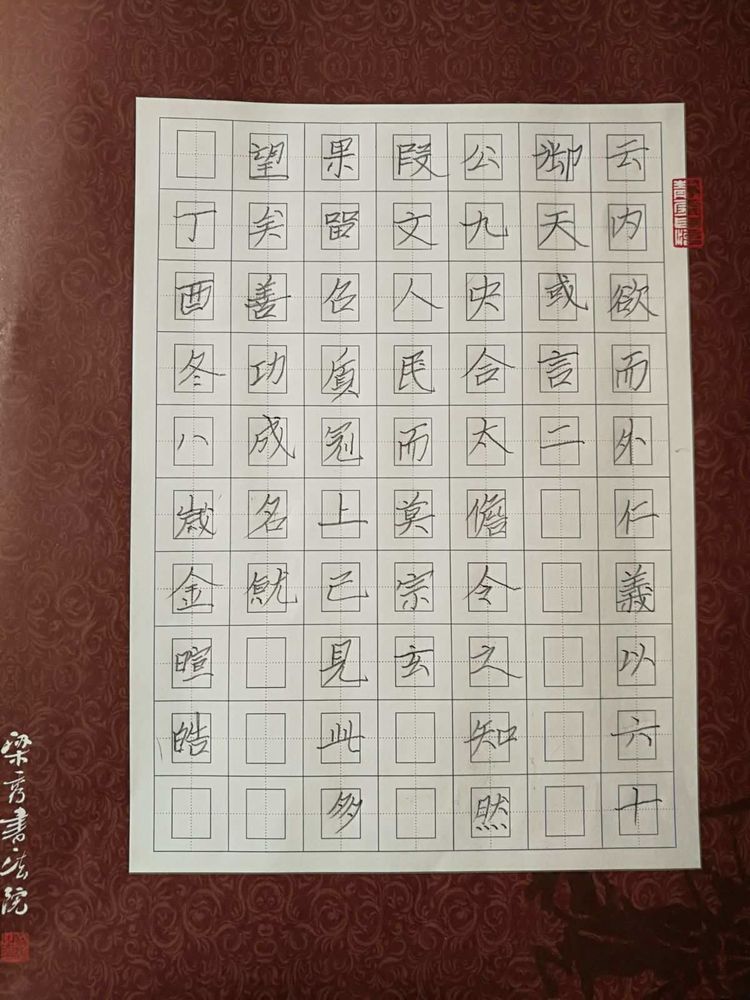 云内欲而外仁義以六十
天或言二
公九央合太儋令之知然
段文人民而莫宗玄
果留名質冠上己見此多
望矣善功成名就
丁酉冬八歲金暄皓
梁秀書法院